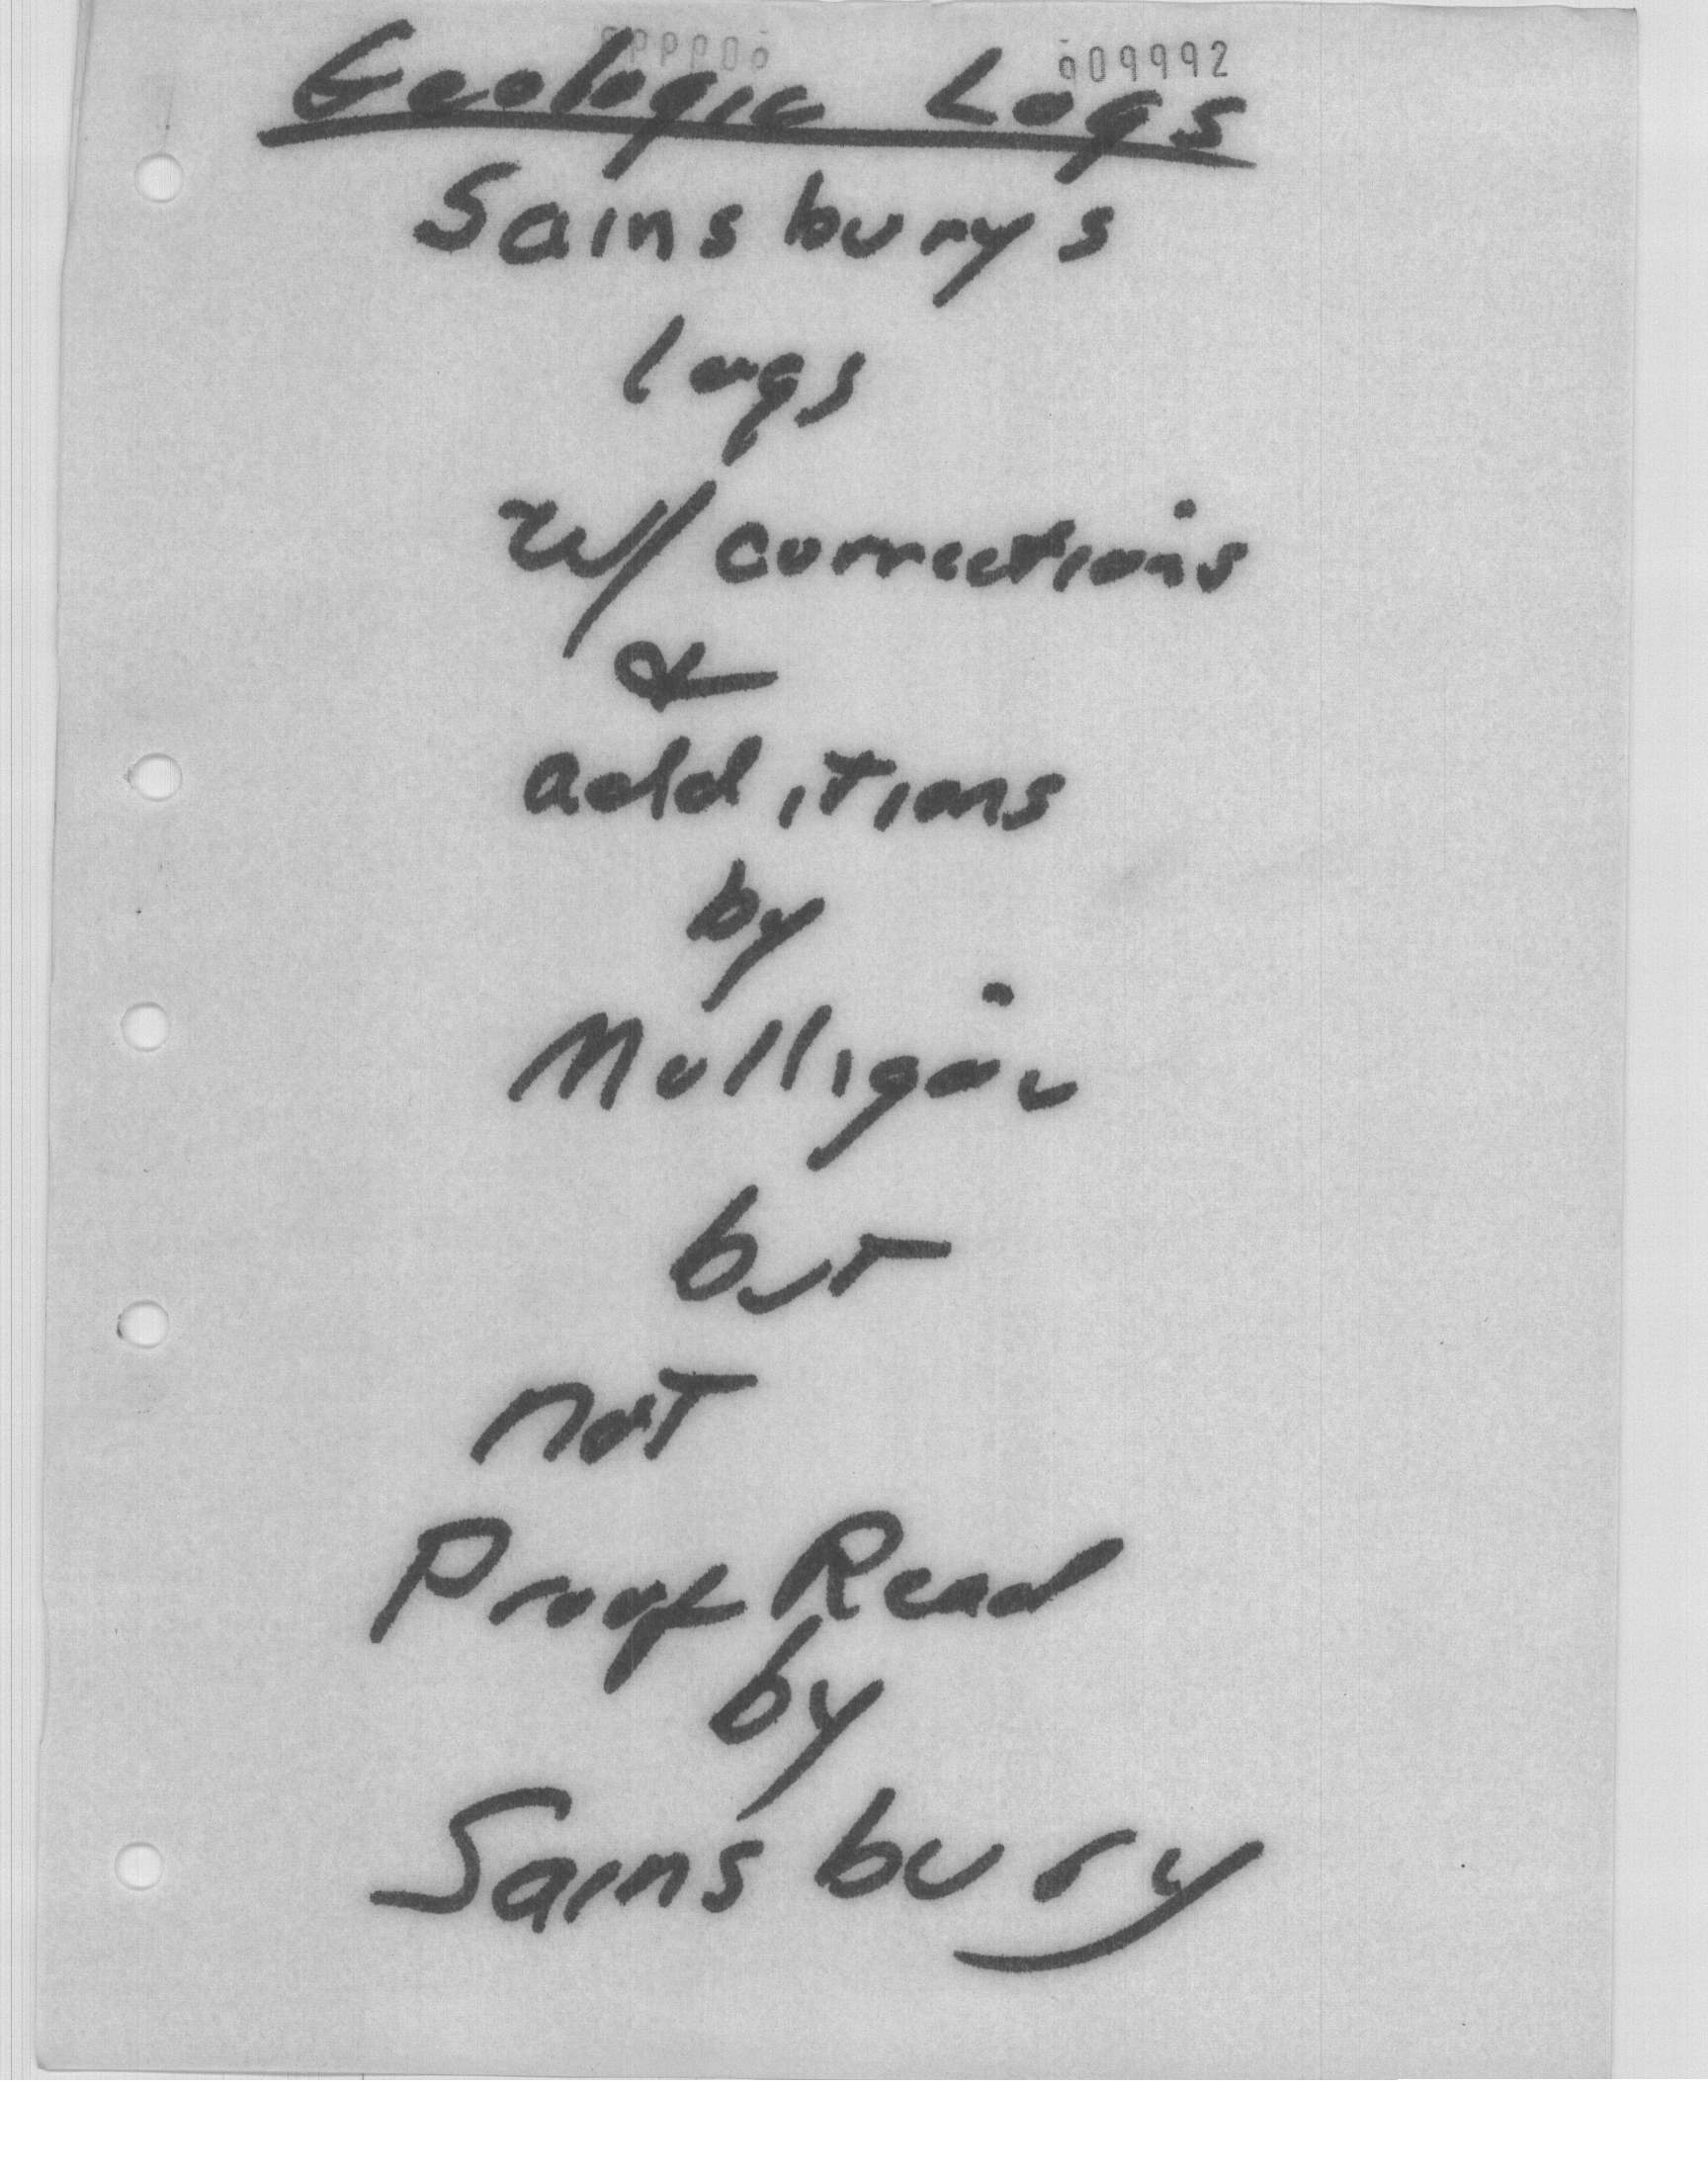 009992
Geologic Logs
Sainsburys
logs
w/ corrections
&
additions
by
Mulligan
but
not
Proof Read
by
Sainsbury